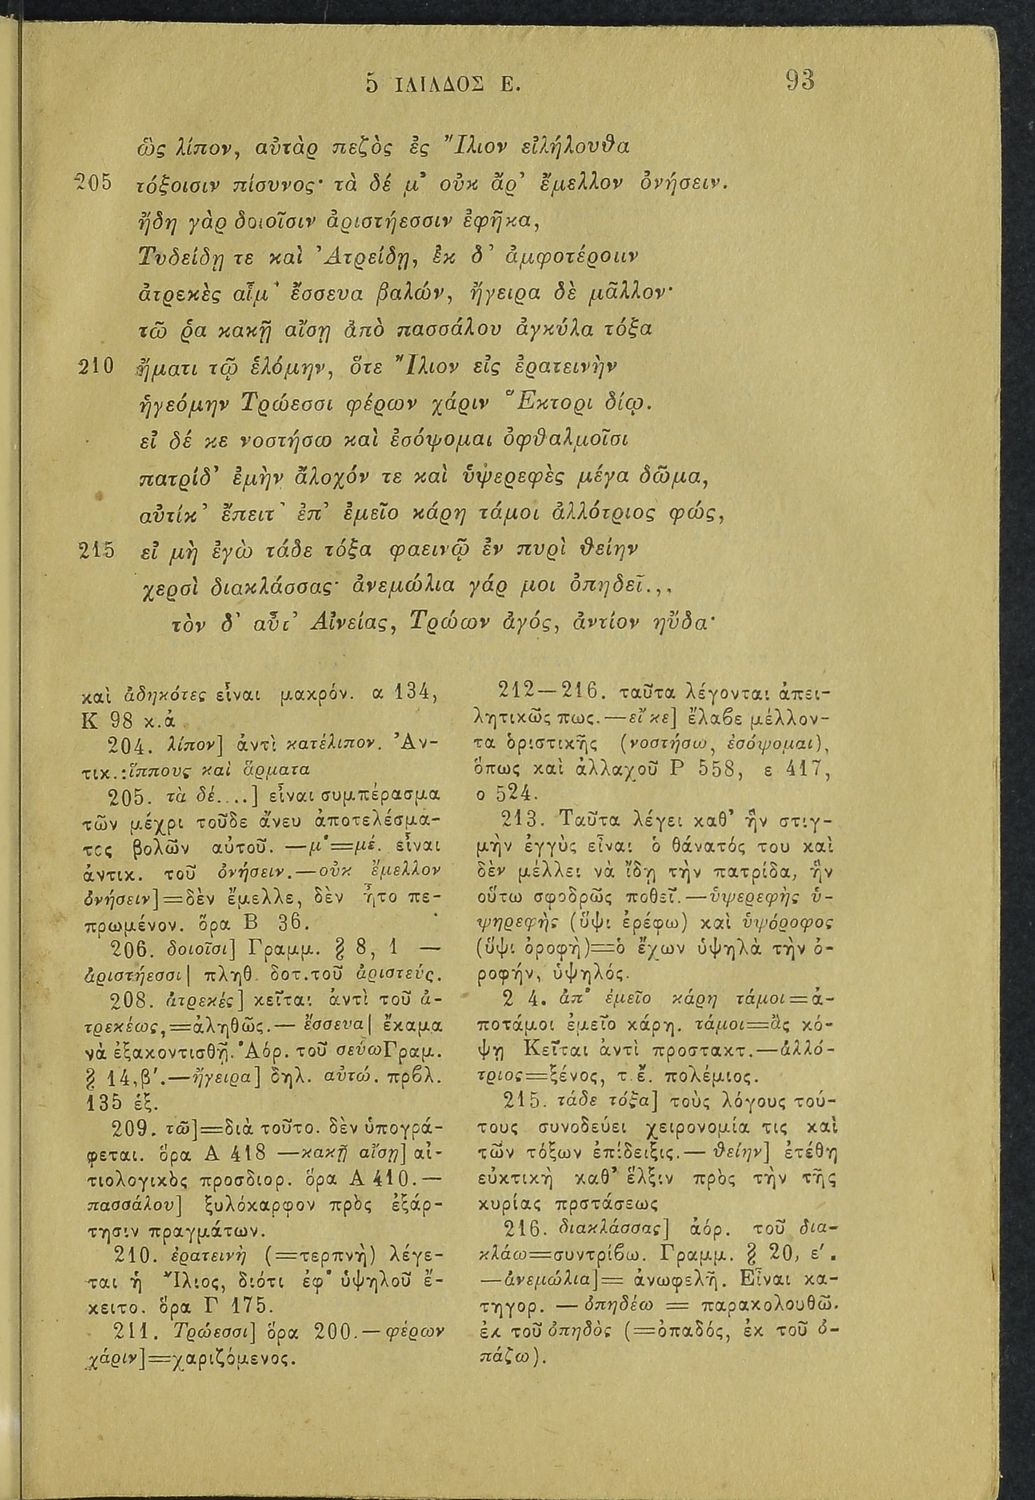 5 ΙΛΙΑΔΟΣ Ε.
93
ὣς λίπον, αὐτὰρ πεζὸς ἐς Ἴλιον εἰλήλουθα
205 τόξοισιν πίσυνος· τὰ δέ μ' οὐκ ἄρ' ἔμελλον ὀνήσειν.
ἤδη γὰρ δοιοῖσιν ἀριστήεσσιν ἐφῆκα,
Τυδείδῃ τε καὶ Ἀτρείδῃ, ἐκ δ' ἀμφοτέροιιν
ἀτρεκὲς αἷμ' ἔσσευα βαλών, ἤγειρα δὲ μᾶλλον·
τῶ ῥα κακῇ αἴσῃ ἀπὸ πασσάλου ἀγκύλα τόξα
210 ἤματι τῷ ἑλόμην, ὅτε Ἴλιον εἰς ἐρατεινὴν
ἡγεόμην Τρώεσσι φέρων χάριν Ἕκτορι δίῳ.
εἰ δέ κε νοστήσω καὶ ἐσόψομαι ὀφθαλμοῖσι
πατρίδ' ἐμὴν ἄλοχόν τε καὶ ὑψερεφὲς μέγα δῶμα,
αὐτίκ' ἔπειτ' ἐπ' ἐμεῖο κάρη τάμοι ἀλλότριος φώς,
215 εἰ μὴ ἐγὼ τάδε τόξα φαεινῷ ἐν πυρὶ θείην
χερσὶ διακλάσσας· ἀνεμώλια γάρ μοι ὀπηδεῖ.,,
τὸν δ' αὖτ' Αἰνείας, Τρώων ἀγός, ἀντίον ηὔδα·
καὶ ἀδηκότες εἶναι μακρόν. α 134,
Κ 98 κ.ἀ
204. λίπον] ἀντὶ κατέλιπον. Ἀν-
τικ.:ἵππους καὶ ἅρματα
205. τὰ δέ....] εἶναι συμπέρασμα
τῶν μέχρι τοῦδε ἄνευ ἀποτελέσμα-
τος βολῶν αὐτοῦ. —μ'=μέ. εἶναι
ἀντικ. τοῦ ὀνήσειν.—οὐκ ἔμελλον
ὀνήσειν]=δὲν ἔμελλε, δὲν ἦτο πε-
πρωμένον. ὅρα Β 36.
206. δοιοῖσι] Γραμμ. § 8, 1 —
ἀριστήεσσι| πληθ. δοτ.τοῦ ἀριστεύς.
208. ἀτρεκές] κεῖται ἀντὶ τοῦ ἀ-
τρεκέως,=ἀληθῶς.— ἔσσευα| ἔκαμα
νὰ ἐξακοντισθῇ. Ἀόρ. τοῦ σεύωΓραμ.
§ 14,β'.—ἤγειρα] δηλ. αὐτώ. πρβλ.
135 ἑξ.
209. τῶ]=διὰ τοῦτο. δὲν ὑπογρά-
φεται. ὅρα Α 418 —κακῇ αἴσῃ] αἰ-
τιολογικὸς προσδιορ. ὅρα Α 410.—
πασσάλου] ξυλόκαρφον πρὸς ἐξάρ-
τησιν πραγμάτων.
210. ἐρατεινὴ (=τερπνὴ) λέγε-
ται ἡ Ἴλιος, διότι ἐφ' ὑψηλοῦ ἔ-
κειτο. ὅρα Γ 175.
211. Τρώεσσι] ὅρα 200.—φέρων
χάριν]=χαριζόμενος.
212—216. ταῦτα λέγονται ἀπει-
λητικῶς πως.—εἴ κε] ἔλαβε μέλλον-
τα ὁριστικῆς (νοστήσω, ἐσόψομαι),
ὅπως καὶ ἀλλαχοῦ Ρ 558, ε 417,
ο 524.
213. Ταῦτα λέγει καθ' ἣν στιγ-
μὴν ἐγγὺς εἶναι ὁ θάνατός του καὶ
δὲν μέλλει νὰ ἴδῃ τὴν πατρίδα, ἣν
οὕτω σφοδρῶς ποθεῖ.—ὑψερεφὴς ὑ-
ψηρεφὴς (ὕψι ἐρέφω) καὶ ὑψόροφος
(ὕψι ὀροφὴ)=ὁ ἔχων ὑψηλὰ τὴν ὀ-
ροφήν, ὑψηλός.
2 4. ἀπ' ἐμεῖο κάρη τάμοι=ἀ-
ποτάμοι ἐμεῖο κάρη. τάμοι=ἂς κό-
ψῃ Κεῖται ἀντὶ προστακτ.—ἀλλό-
τριος=ξένος, τ.ἔ. πολέμιος.
215. τάδε τόξα] τοὺς λόγους τού-
τους συνοδεύει χειρονομία τις καὶ
τῶν τόξων ἐπίδειξις.— θείην] ἐτέθη
εὐκτικὴ καθ' ἕλξιν πρὸς τὴν τῆς
κυρίας πρστάσεως
216. διακλάσσας] ἀόρ. τοῦ δια-
κλάω=συντρίβω. Γραμμ. § 20, ε'.
—ἀνεμώλια]= ἀνωφελῆ. Εἶναι κα-
τηγορ. —ὀπηδέω = παρακολουθῶ.
ἐκ τοῦ ὀπηδὸς (=ὀπαδός, ἐκ τοῦ ὀ-
πάζω).